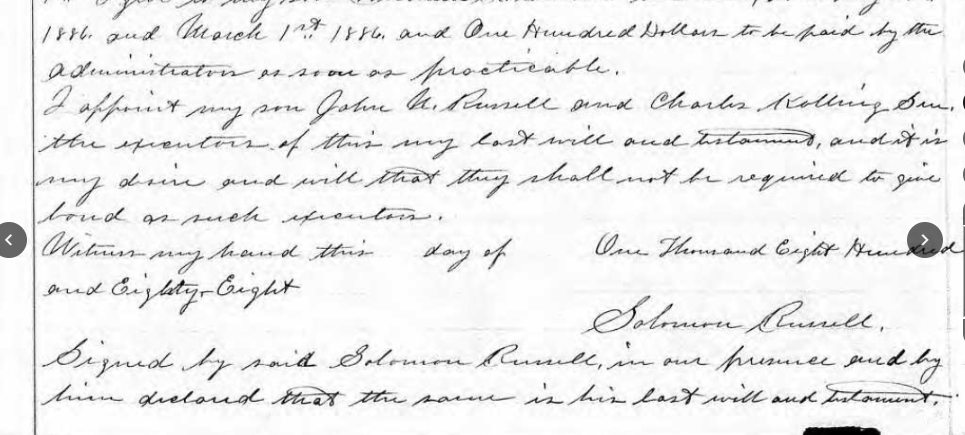 1886. and March 1st 1886. and One Hundred Dollars to be paid by the
administrators as soon as practicable.
I appoint my son John U. Russell and Charles Kolling Sen.
the executors of this my last will and testament, and it is
my desire and will that they shall not be required to give
bond as such executors.
Witness my hand this day of One Thousand Eight Hundred
and Eighty-Eight
Solomon Russell.
Signed by said Solomon Russell, in our presence and by
him declared that the same is his last will and testament.